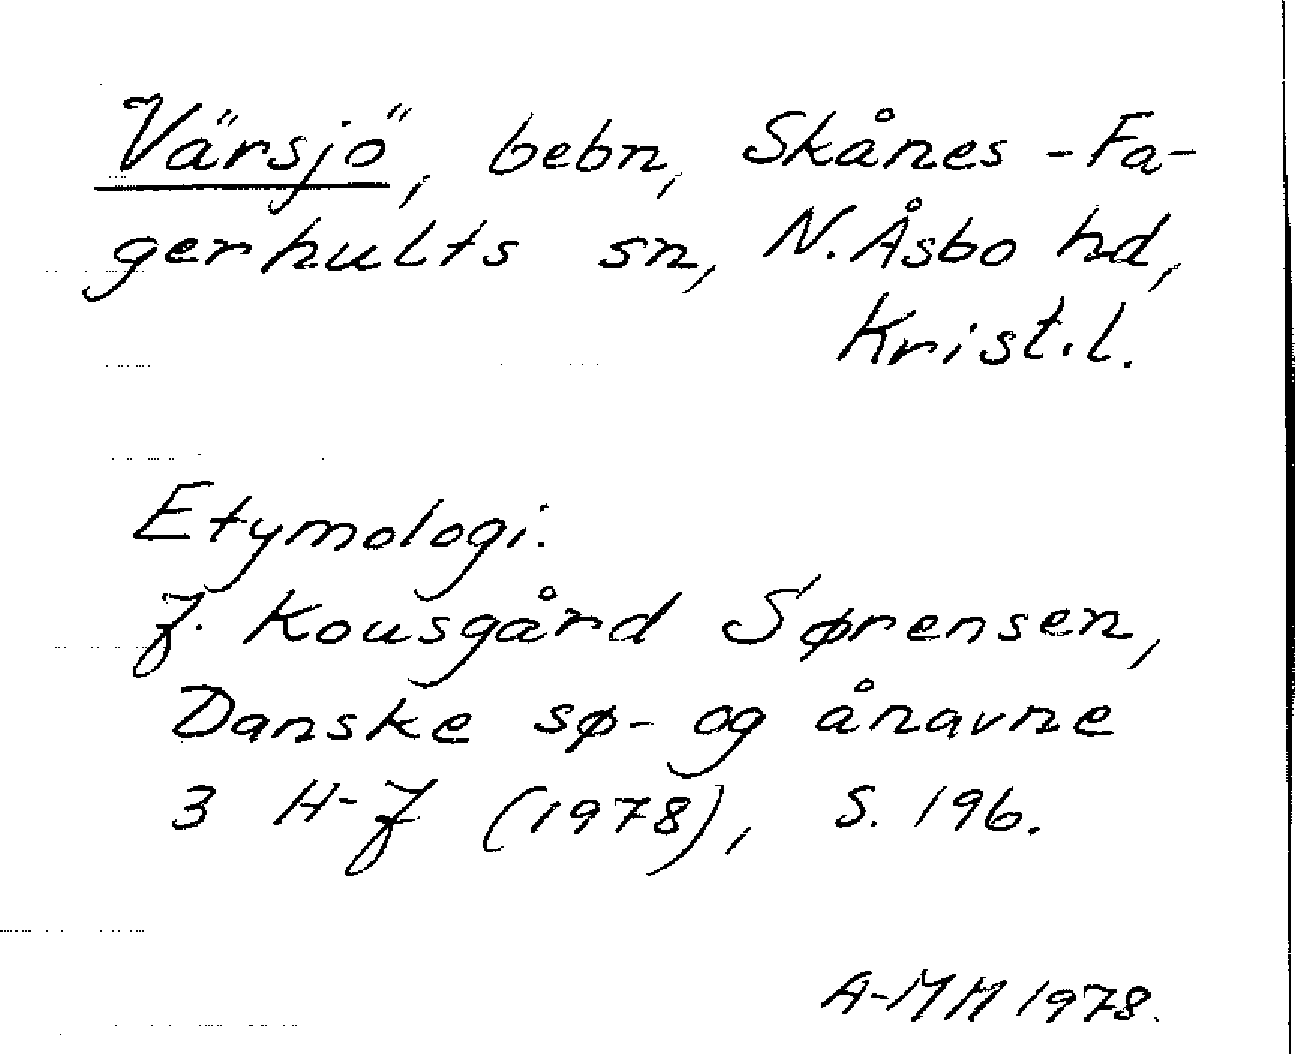 Värsjö, bebn, Skånes-Fa-
gerhults sn, N. Åsbo hd,
Krist.l.
Etymologi.
J. Kousgård Sørensen,
Danske sø- og ånavne
3 H-J (1978), S. 196.
A-MM 1978.